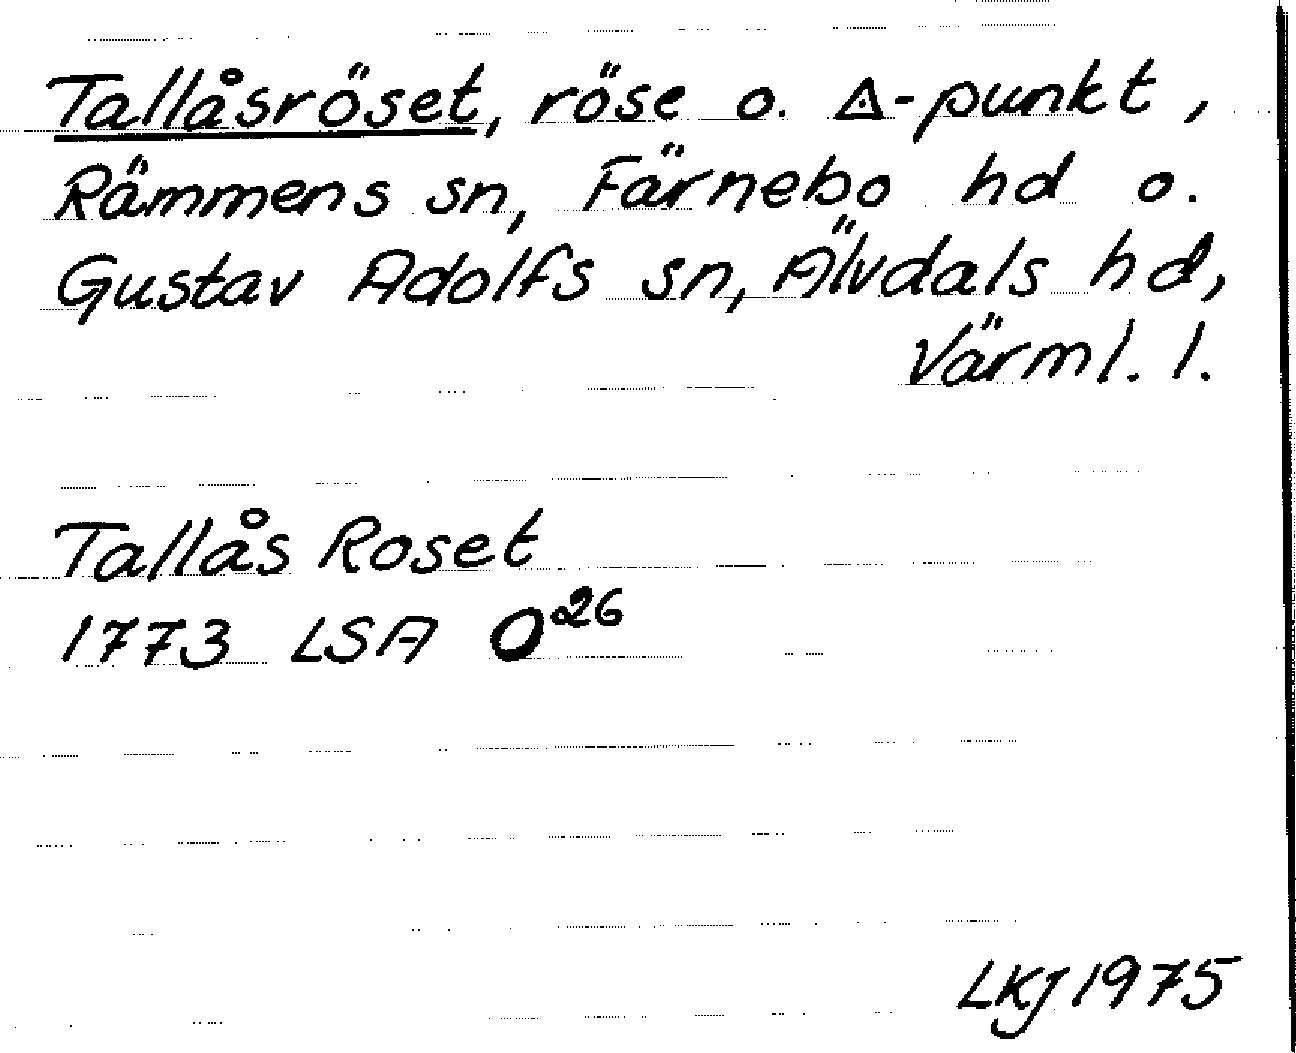 Tallåsröset, röse o. ∆-punkt,
Rämmens sn, Färnebo hd o.
Gustav Adolfs sn, Älvdals hd,
Värml. l.
Tallås Roset
1773 LSA O²⁶
LKJ 1975